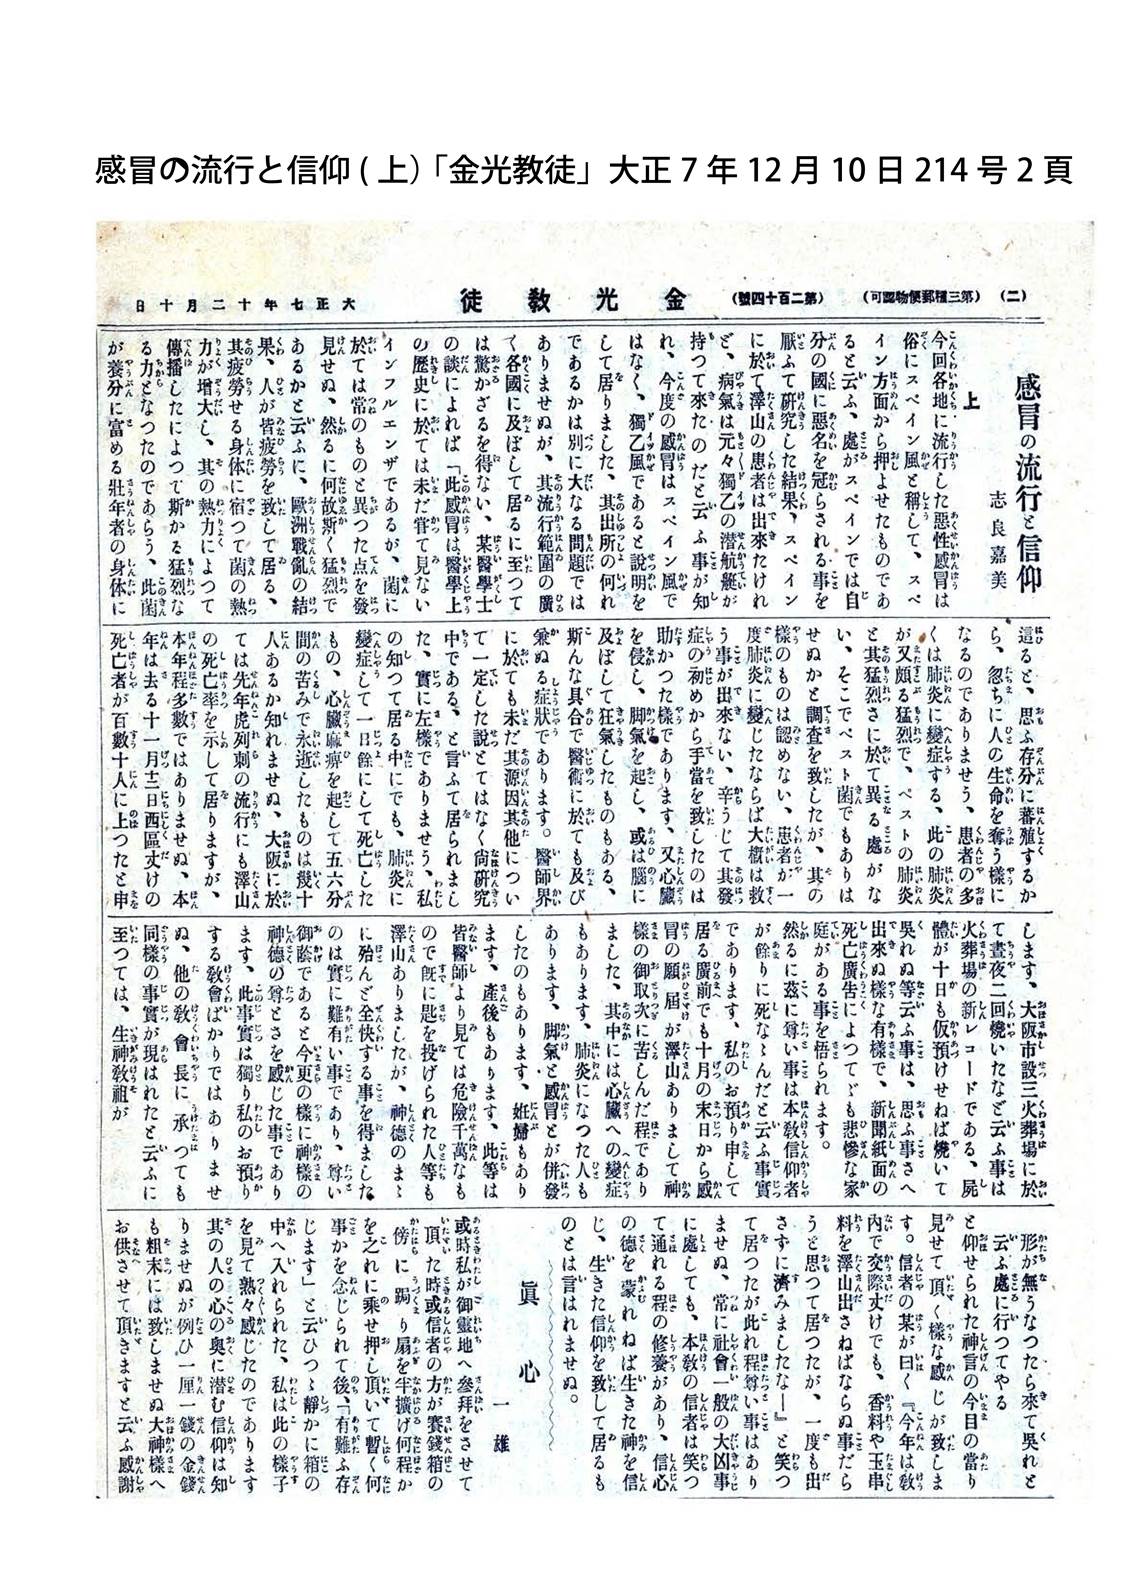 感冒の流行と信仰(上)「金光教徒」大正7年12月10日214号2頁
(二) (第三種郵便物認可) (第二百十四號) 金光敎徒 大正七年十二月十日
感冒の流行と信仰
志良嘉美
上
今回各地に流行した惡性感冒は
俗にスペイン風と稱して、スペ
イン方面から押よせたものであ
ると云ふ、處がスペインでは自
分の國に惡名を冠らされる事を
厭ふて硏究した結果、スペイン
に於て澤山の患者は出來たけれ
ど、病氣は元々獨乙の潜航艇が
持つて來たのだと云ふ事が知
れ、今度の感冒はスペイン風で
はなく、獨乙風であると說明を
して居りました、其出所の何れ
であるかは別に大なる問題では
ありませぬが、其流行範圍の廣
く各國に及ぼして居るに至つて
は驚かざるを得ない、某醫學士
の談によれば「此感冒は、醫學上
の歷史に於ては未だ甞て見ない
インフルエンザであるが、菌に
於ては常のものと異つた点を發
見せぬ、然るに何故斯く猛烈で
あるかと云ふに、歐洲戰亂の結
果、人が皆疲勞を致して居る、
其疲勞せる身体に宿つて菌の熱
力が增大し、其の熱力によつて
傳播したによつて斯かる猛烈な
る力となつたのであらう、此菌
が養分に富める壯年者の身体に
這ると、思ふ存分に蕃殖するか
ら、忽ちに人の生命を奪う樣に
なるのでありませう、患者の多
くは肺炎に變症する、此の肺炎
が又頗る猛烈で、ペストの肺炎
と其猛烈さに於て異る處がな
い、そこでペスト菌でもありは
せぬかと調査を致したが、其の
樣のものは認めない、患者が一
度肺炎に變じたならば大槪は救
う事が出來ない、辛うじて其發
症の初めから手當を致したのは
助かつた樣であります、又心臟
を侵し、脚氣を起し、或は腦に
及ぼして狂氣したものもある、
斯んな具合で醫術に於ても及び
兼ぬる症狀であります。醫師界
に於ても未だ其源因其他につい
て一定した說とてはなく尙硏究
中である、と言ふて居られまし
た、實に左樣でありませう、私
の知つて居る中にでも、肺炎に
變症して一日餘にして死亡した
もの、心臟麻痺を起して五六分
間の苦みで永逝したものは幾十
人あるか知れませぬ、大阪に於
ては先年虎列刺の流行にも澤山
の死亡率を示して居りますが、
本年程多數ではありませぬ、本
年は去る十一月十二日西區丈けの
死亡者が百數十人に上つたと申
します、大阪市設三火葬場に於
て晝夜二回燒いたなど云ふ事は
火葬場の新レコードである、屍
體が十日も仮預けせねば燒いて
吳れぬ等云ふ事は、思ふ事さへ
出來ぬ樣な有樣で、新聞紙面の
死亡廣告によつてゞも悲慘な家
庭がある事を悟られます。
然るに茲に尊い事は本敎信仰者
が餘りに死なゝんだと云ふ事實
であります、私のお預り申して
居る廣前でも十月の末日から感
冒の願屆が澤山ありまして神
樣の御取次に苦しんだ程であり
ました、其中には心臟への變症
もあります、肺炎になつた人も
あります、脚氣と感冒とが併發
したのもあります、姙婦もあり
ます、產後もあります、此等は
皆醫師より見ては危險千萬なも
ので旣に匙を投げられた人等も
澤山ありましたが、神德のまゝ
に殆んど全快する事を得ました
のは實に難有い事であり、尊い
御蔭であると今更の樣に神樣の
神德の尊とさを感じた事であり
ます、此事實は獨り私のお預り
する敎會ばかりではありませ
ぬ、他の敎會長に承つても
同樣の事實が現はれたと云ふに
至つては、生神敎祖が
形が無うなつたら來て吳れと
云ふ處に行つてやる
と仰せられた神言の今日の當り
見せて頂く樣な感じが致しま
す。信者の某が曰く『今年は敎
內で交際丈けでも、香料や玉串
料を澤山出さねばならぬ事だら
うと思つて居つたが、一度も出
さずに濟みましたなー』と笑つ
て居つたが此れ程尊い事はあり
ませぬ、常に社會一般の大凶事
に處しても、本敎の信者は笑つ
て通れる程の修養があり、信心
の德を蒙れねば生きた神を信
じ、生きた信仰を致して居るも
のとは言はれませぬ。
眞心
一雄
或時私が御靈地へ參拜をさせて
頂いた時或信者の方が賽錢箱の
傍に跼り扇を半擴げ何程か
を之れに乘せ押し頂いて暫く何
事かを念じられて後、「有難ふ存
じます」と云ひつゝ靜かに箱の
中へ入れられた、私は此の樣子
を見て熟々感じたのであります
其の人の心の奧に潜む信仰は知
りませぬが例ひ一厘一錢の金錢
も粗末には致しませぬ大神樣へ
お供させて頂きますと云ふ感謝